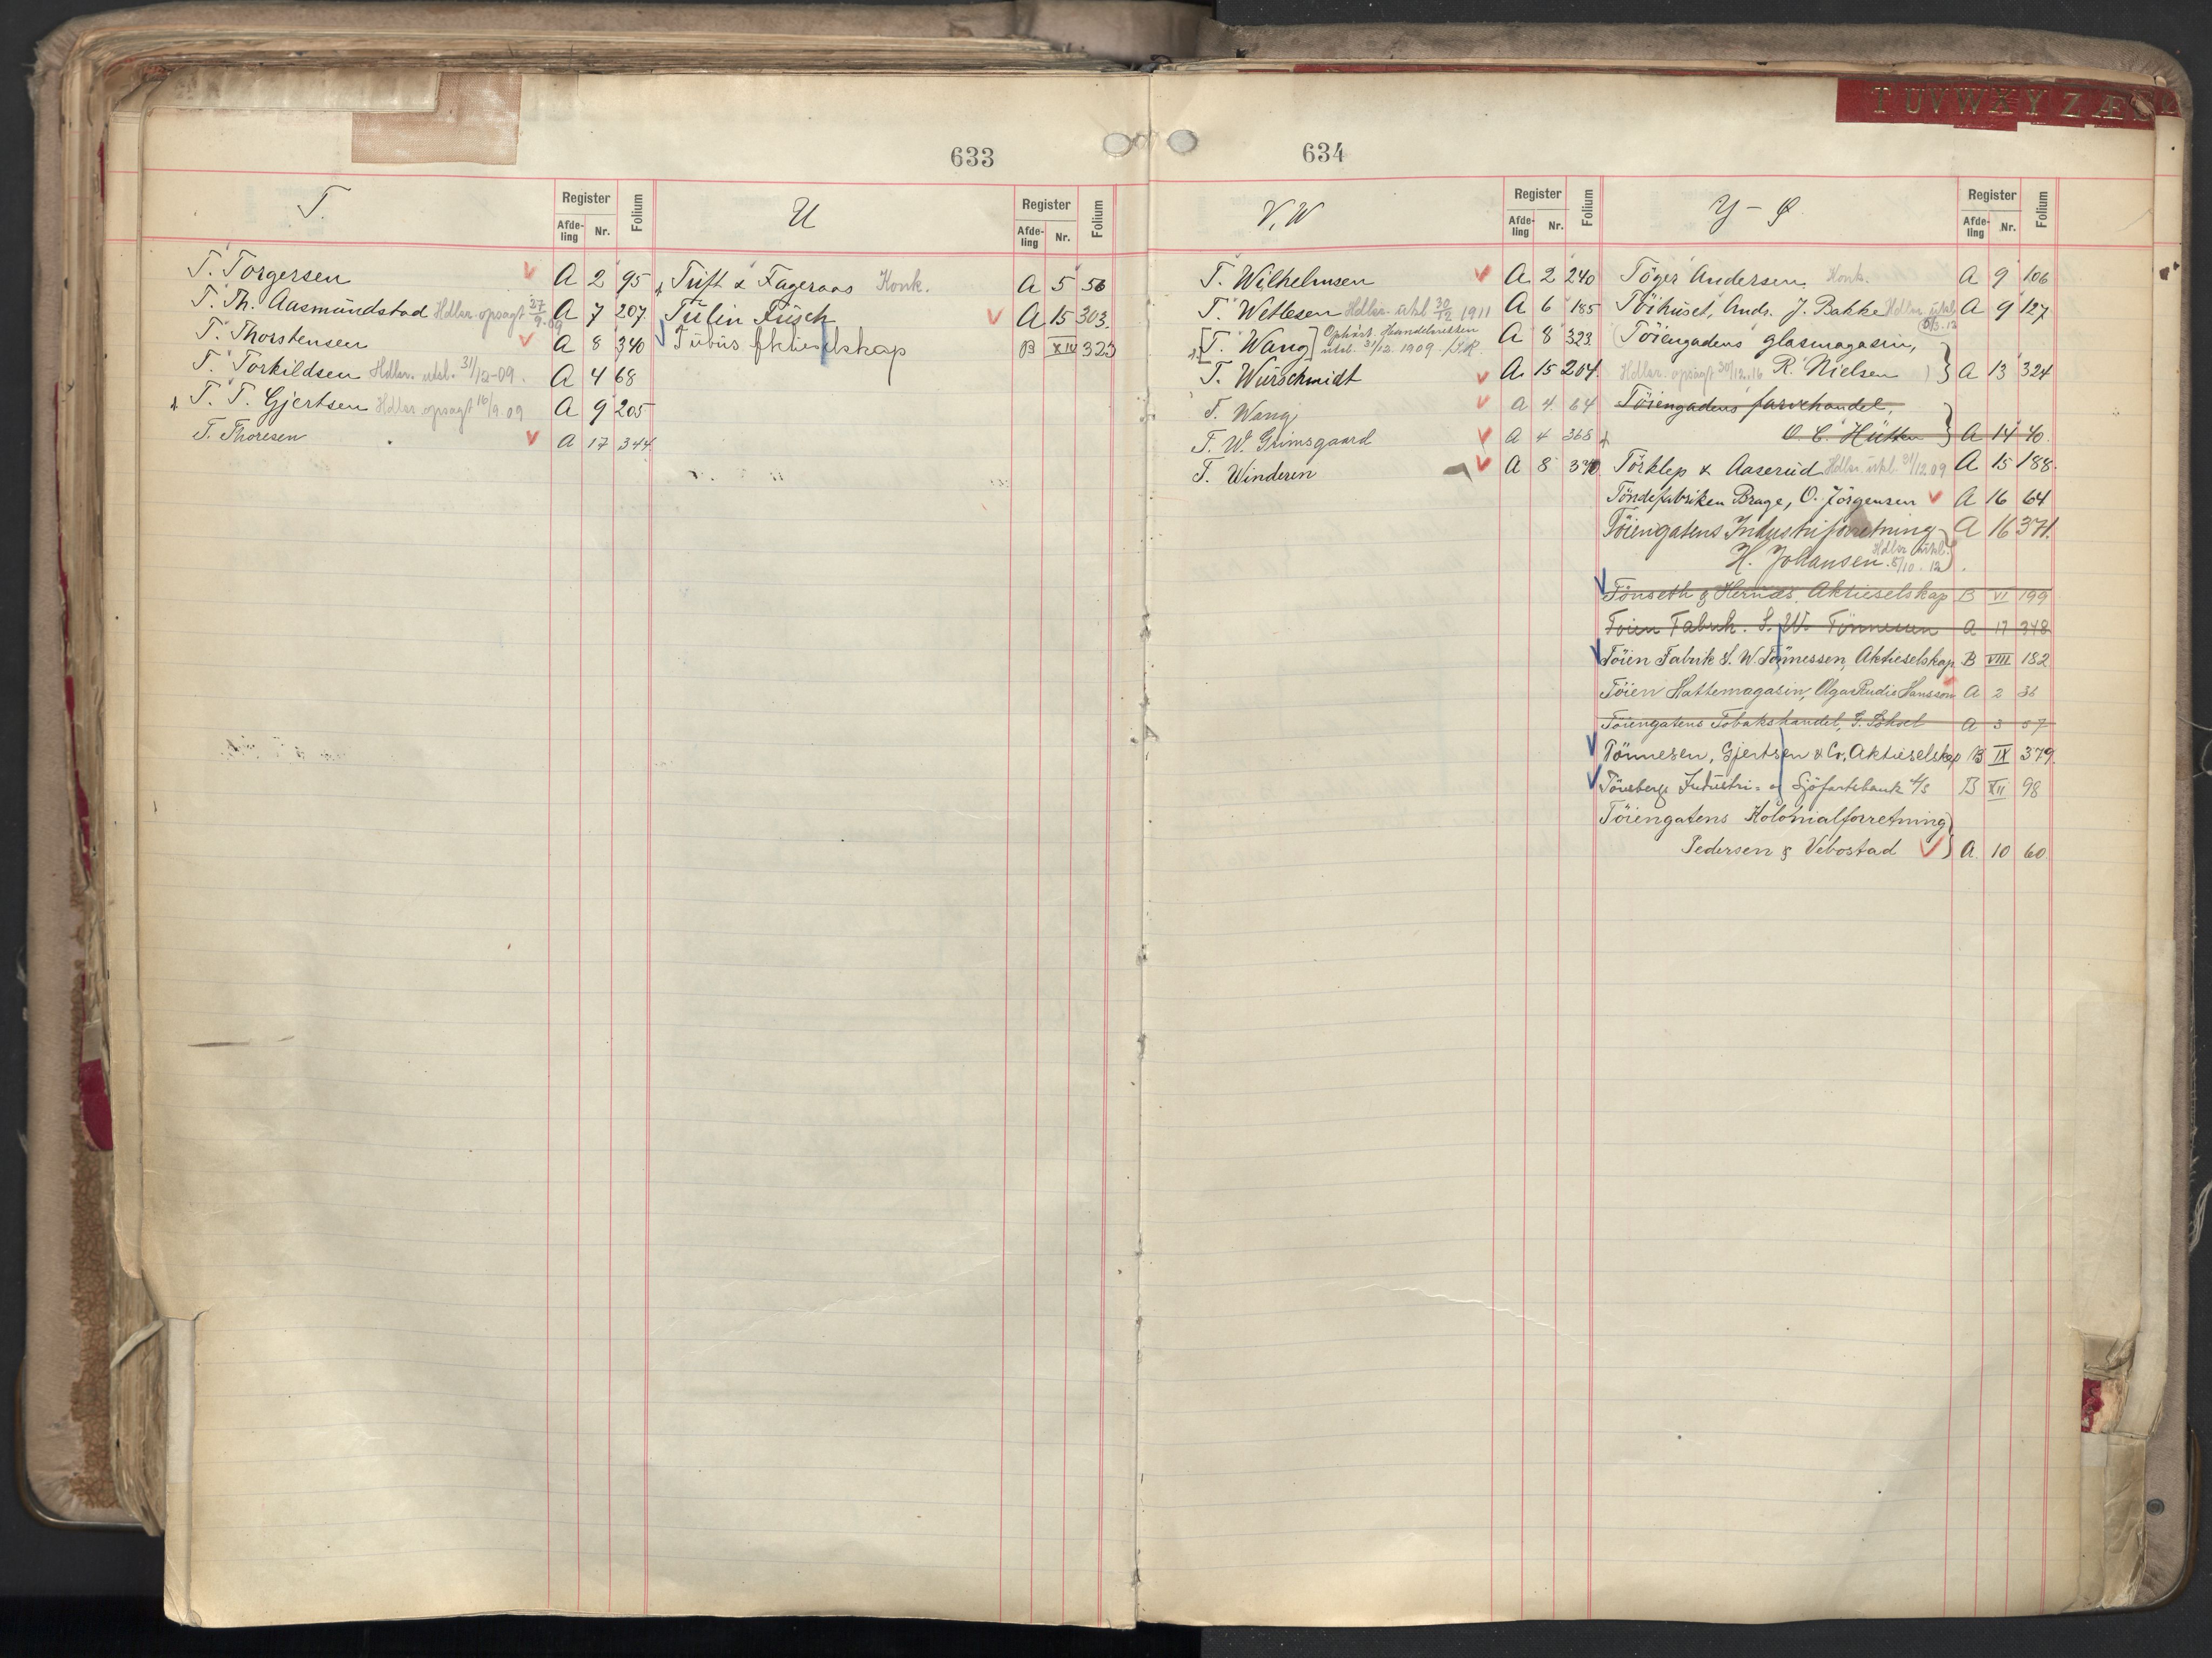 633
T.
Register
Afde-
ling
Nr.
Folium
T. Torgersen A 2 95
T. Th. Aasmundstad Hdlsr. opsagt 27/9.09 A 7 207
T. Thorstensen A 8 340
T. Torkildsen Hdlsr. utsl. 31/12-09. A 4 68
T. T. Gjertsen Hdlsr opsagt 16/9.09 A 9 205
T. Thoresen A 17 344
U
Register
Afde-
ling
Nr.
Folium
Tuft & Fageraas Konk. A 5 56
Tulin Fusch A 15 303.
Tubus Aktieselskap B XIV 323
TUVWXYZÆ
634
V, W
Register
Afde-
ling
Nr.
Folium
T. Wilhelmsen A 2 240
T. Wetlesen Hdlsr. utsl 30/12 1911 A 6 185
[T. Wang] Ophört. Handelsretten
utsl. 31/12. 1909. A 8 323
T. Würschmidt A 15 204.
T. Wang A 4 64
T. W. Grimsgaard A 4 368
T. Winderen A 8 370
Y - Ø
Register
Afde-
ling
Nr.
Folium
Töger Andersen Konk. A 9 106
Töihuset, Ands. J. Bakke Hdlsr. utsl. A 9 127
Töiengadens glasmagasin,
Hdlsr. opsagt 30/12.16 R. Nielsen A 13 324
Töiengadens farvehandel,
O. C. Hütten A 14 40.
Törklep & Aaserud Hdlsr. utsl. 31/12 09 A 15 188.
Töndefabriken Brage, O. Jörgensen A 16 64
Töiengatens Industriforretning A 16 371.
H. Johansen. Hdlsr utsl. 5/10. 12
Tönseth & Hernæs. Aktieselskap B VI 199
Töien Fabrik. S. W. Tönnesen A 17 348
Töien Fabrik S. W. Tönnessen, Aktieselskap B VIII 182
Töien Hattemagasin, Olga Rudie Hansson A 2 36
Töiengatens Tobakshandel, A 3 57
Tönnesen, Gjertsen & Co, Aktieselskap B IX 379.
Tönsbergs Industri- og Sjöfartsbank A/S B XII 98
Töiengatens Kolonialforretning
Pedersen & Vebostad A. 10 60.